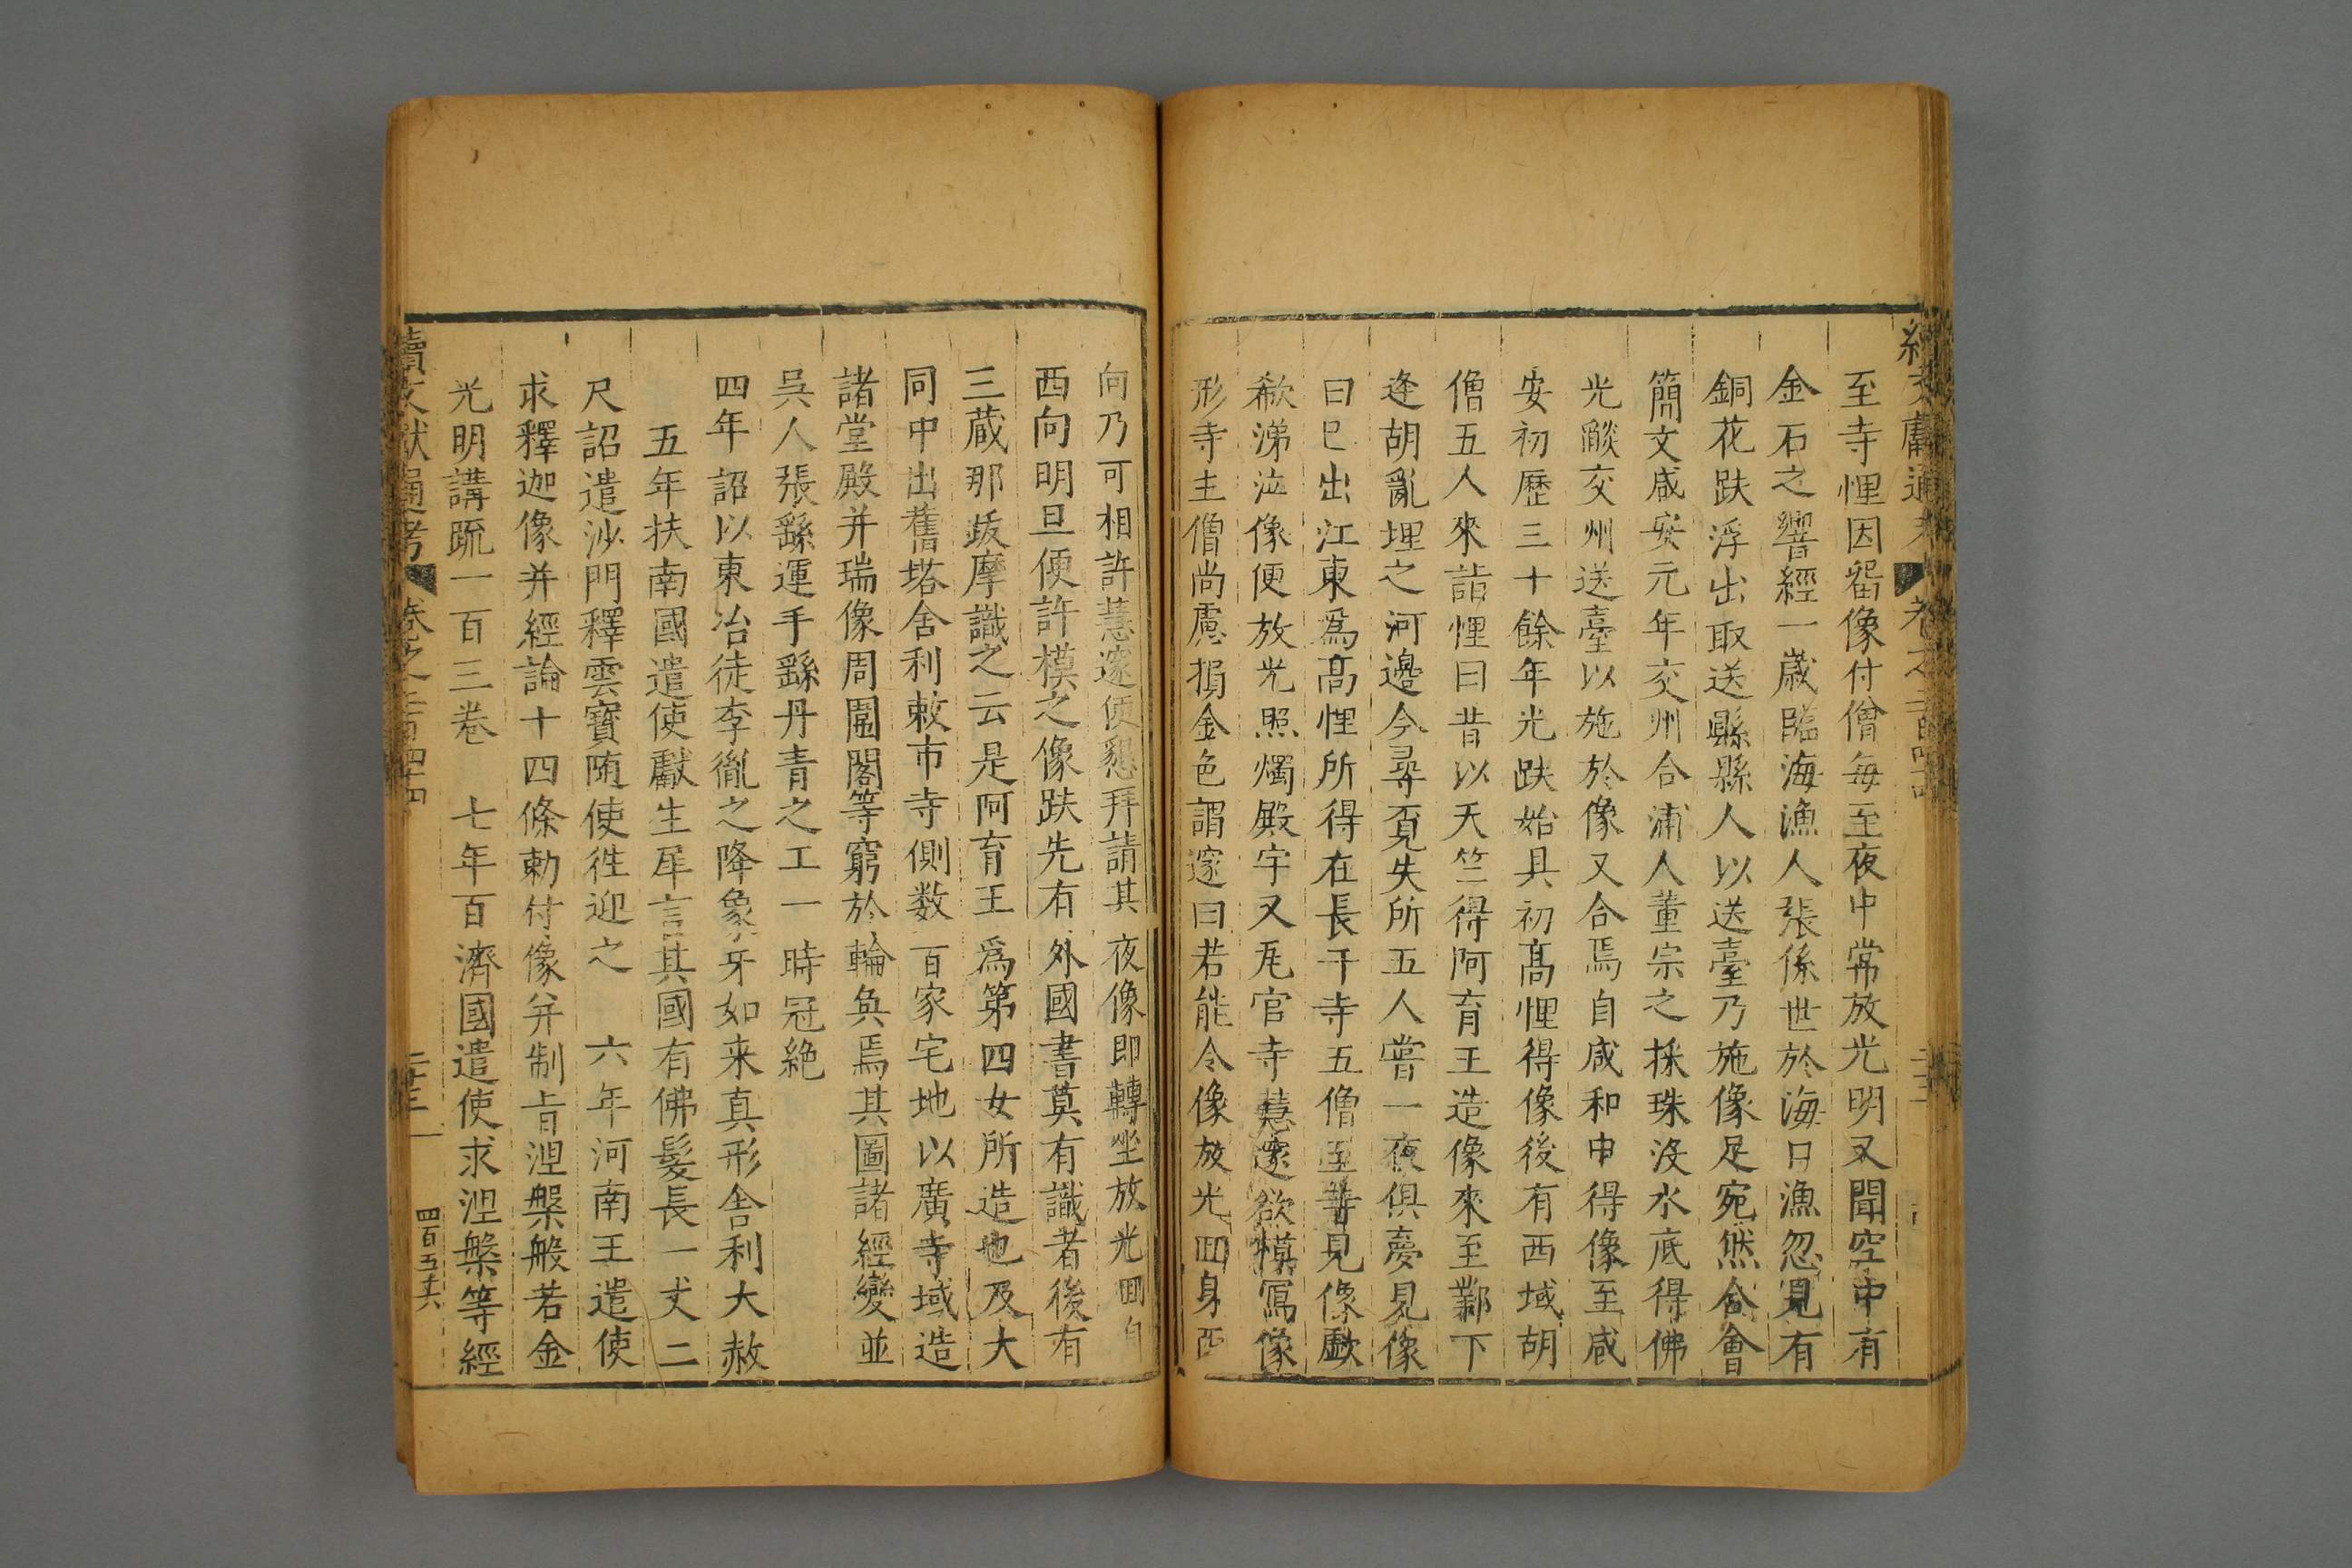 至寺悝因留像付僧每至夜中常放光明又聞空中有
金石之響經一歲臨海漁人張係世於海口漁忽見有
銅花趺浮出取送縣縣人以送臺乃施像足宛然合會
簡文咸安元年交州合浦人董宗之採珠沒水底得佛
光燄交州送臺以施於像又合焉自咸和中得像至咸
安初歷三十餘年光趺始具初高悝得像後有西域胡
僧五人來詣悝曰昔以天竺得阿育王造像來至鄴下
逢胡亂埋之河邊今尋覓失所五人嘗一夜俱夢見像
曰已出江東爲高悝所得在長干寺五僧至寺見像歔
欷涕泣像便放光照燭殿宇又瓦官寺慧邃欲模寫像
形寺主僧尚慮損金色謂邃曰若能令像放光回身西
向乃可相許慧邃便懇拜請其夜像即轉坐放光回身
西向明旦便許模之像趺先有外國書莫有識者後有
三蔵那跋摩識之云是阿育王爲第四女所造也及大
同中出舊塔舍利敕市寺側数百家宅地以廣寺域造
諸堂殿并瑞像周圍閣等窮於輪奐焉其圖諸經變並
吳人張繇運手繇丹青之工一時冠絶
四年詔以東冶徒李胤之降象牙如来真形舍利大赦
五年扶南國遣使獻生犀言其國有佛髮長一丈二
尺詔遣沙門釋雲寶随使徃迎之 六年河南王遣使
求釋迦像并經論十四條勅付像并制旨涅槃般若金
光明講䟽一百三卷 七年百濟國遣使求涅槃等經
續文獻通考 卷之二百四十四 二十三 四百五十六